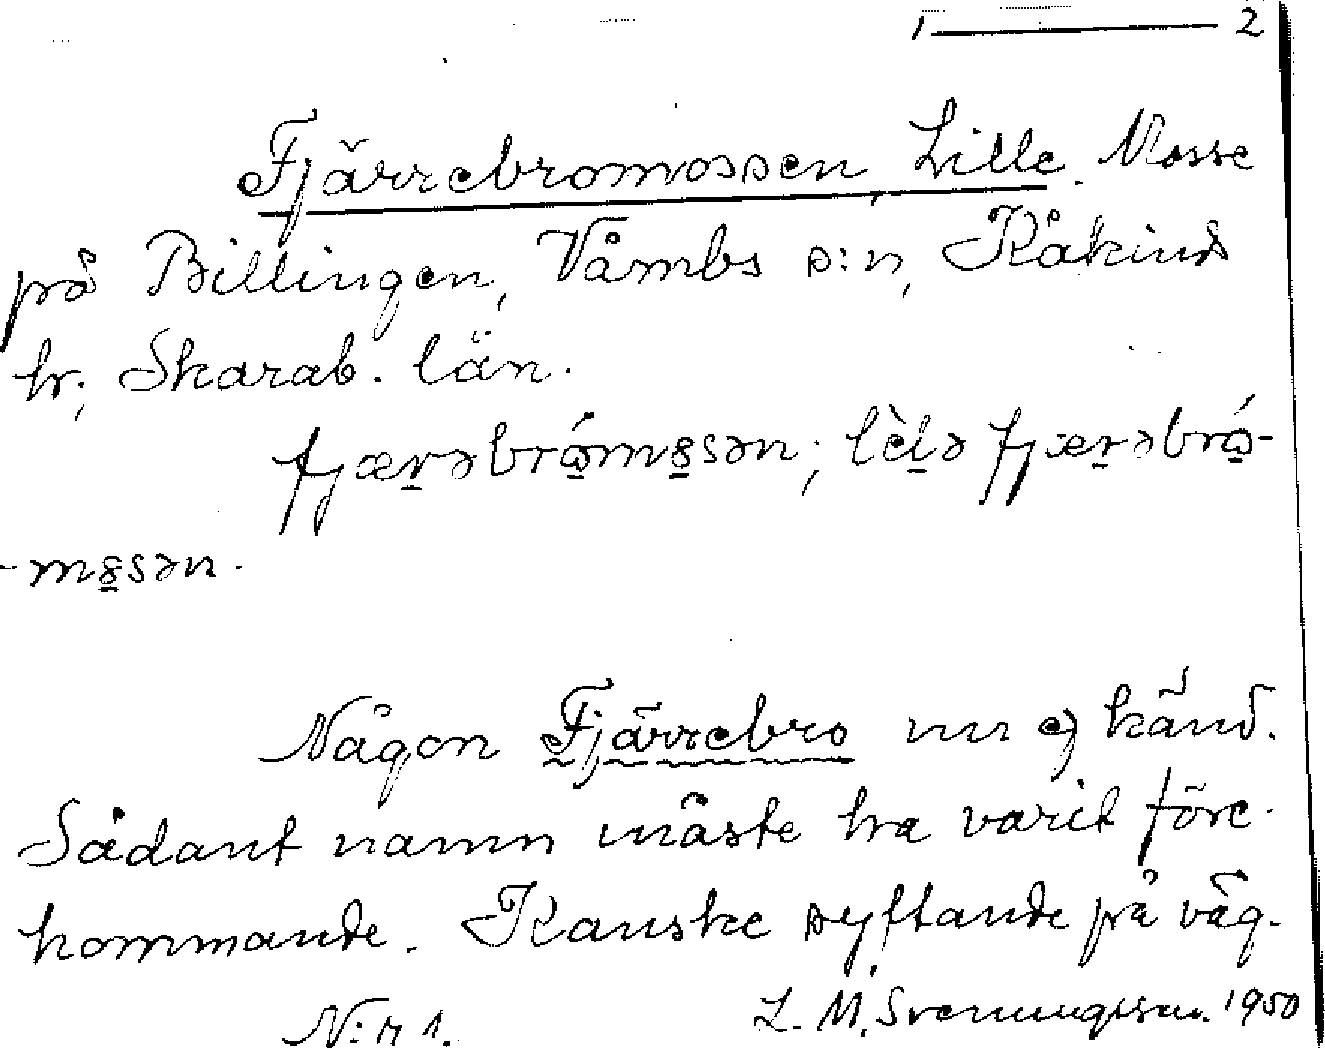 1 — 2
Fjärrebromossen, Lille. Mosse
på Billingen, Våmbs s:n, Kåkinds
hr, Skarab. län.
fjærəbrómåsən; lèlə fjærəbró-
-måsən.
Någon Fjärrebro nu ej känd.
Sådant namn måste ha varit före-
kommande. Kanske syftande på väg-
N:r 1. L. M. Svenungsson. 1950